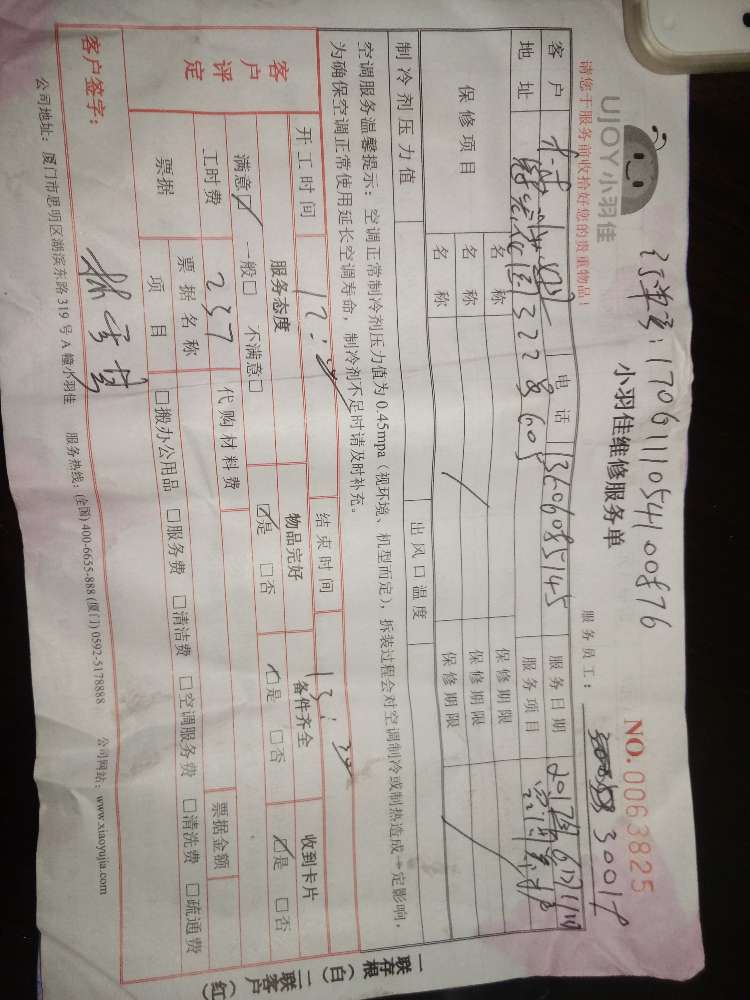 订单号:1706111054100876
UJOY小羽佳
小羽佳维修服务单
NO.0063825
请您于服务前收拾好您的贵重物品!
服务员工:
客户
电话 13606085145
服务日期
地址
1322号605
服务项目
保修项目
名称
保修期限
名称
保修期限
名称
保修期限
制冷剂压力值
出风口温度
空调服务温馨提示:空调正常制冷剂压力值为0.45mpa(视环境、机型而定),拆装过程会对空调制冷或制热造成一定影响,
为确保空调正常使用延长空调寿命,制冷剂不足时请及时补充。
开工时间
结束时间
客户评定
服务态度
物品完好
备件齐全
收到卡片
满意☑ 一般□ 不满意□
☑是 □否
☑是 □否
☑是 □否
工时费 237
代购材料费
票据
票据名称
票据金额
项目
□搬办公用品 □服务费 □清洁费 □空调服务费 □清洗费 □疏通费
客户签字:
公司地址:厦门市思明区湖滨东路319号A幢小羽佳 服务热线:(全国)400-6655-888(厦门)0592-5178888 公司网站:www.xiaoyujia.com
一联存根(白)二联客户(红)